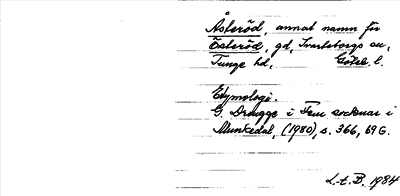 Åsteröd, annat namn för
Österöd, gd, Svarteborgs sn,
Tunge hd, Göteb. l.
Etymologi.
G. Drougge i Fem socknar i
Munkedal, (1980), s. 366, 69 G.
L-t. B. 1984